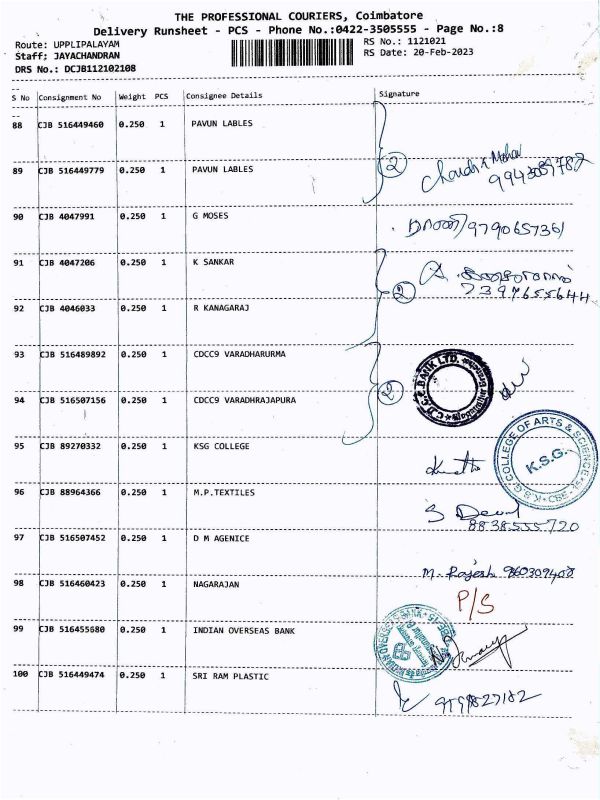 THE PROFESSIONAL COURIERS, Coimbatore
Delivery Runsheet - PCS - Phone No.:0422-3505555 - Page No.:8
Route: UPPLIPALAYAM
RS No.: 1121021
Staff; JAYACHANDRAN
RS Date: 20-Feb-2023
DRS No.: DCJB112102108
S No Consignment No Weight PCS Consignee Details Signature
88 CJB 516449460 0.250 1 PAVUN LABLES
89 CJB 516449779 0.250 1 PAVUN LABLES ② 9943089782
90 CJB 4047991 0.250 1 G MOSES 9790657361
91 CJB 4047206 0.250 1 K SANKAR
7397655644
92 CJB 4046033 0.250 1 R KANAGARAJ ②
93 CJB 516489892 0.250 1 CDCC9 VARADHARURMA
94 CJB 516507156 0.250 1 CDCC9 VARADHRAJAPURA ② BANK LTD.
95 CJB 89270332 0.250 1 KSG COLLEGE K.S.G. COLLEGE OF ARTS & SCIENCE K.S.G.
96 CJB 88964366 0.250 1 M.P.TEXTILES
8838555720
97 CJB 516507452 0.250 1 D M AGENICE
M. Rajesh
98 CJB 516460423 0.250 1 NAGARAJAN P/S
99 CJB 516455680 0.250 1 INDIAN OVERSEAS BANK
100 CJB 516449474 0.250 1 SRI RAM PLASTIC